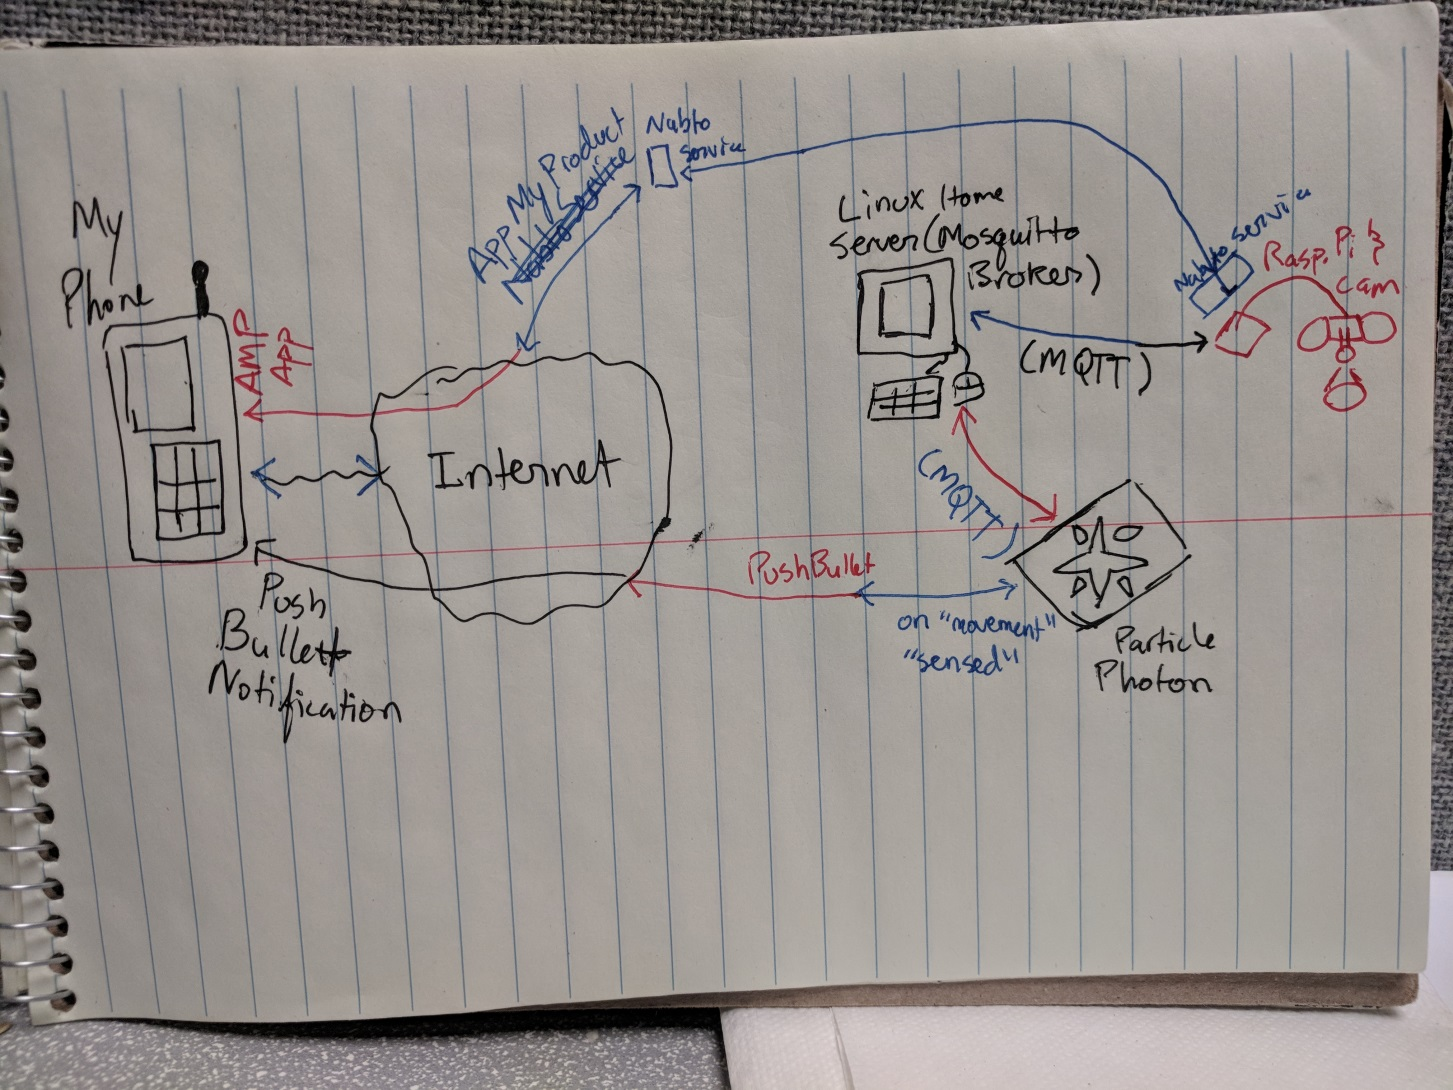 My
Phone
AMP
App
App My Product
Nabto Service
Nabto
service
Linux Home
Server (Mosquitto
Broker)
Nabto service
Rasp. Pi &
cam
(MQTT)
Internet
(MQTT)
PushBullet
on "movement"
"sensed"
Particle
Photon
Push
Bullet
Notification